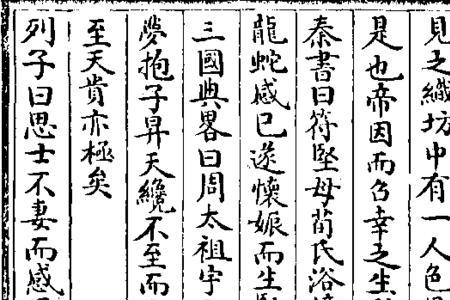 見之織坊中有一人色
是也帝因而召幸之生
秦書曰符堅母荀氏浴
龍蛇感已遂懷娠而生
三國典畧曰周太祖宇
夢抱子昇天纔不至而
至天貴亦極矣
列子曰思士不妻而感